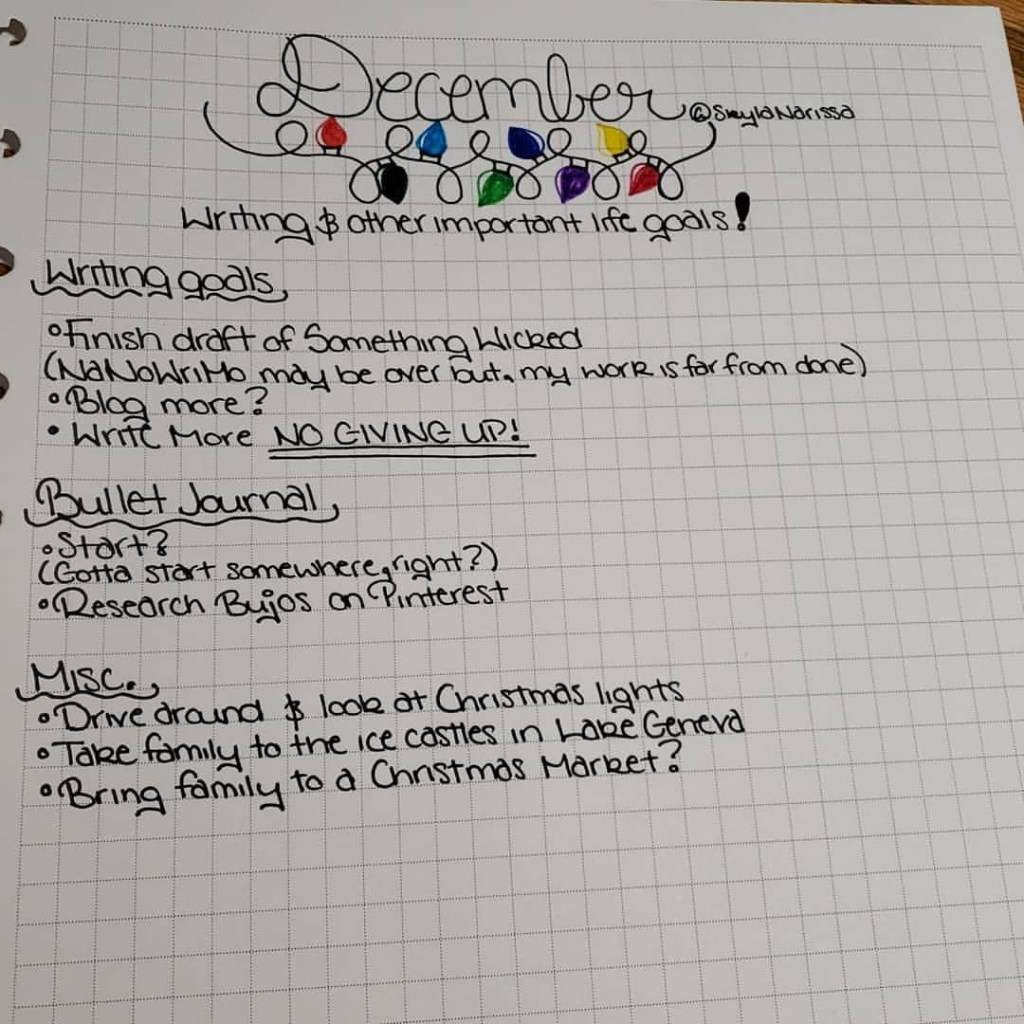 December
@SmylaNarissa
Writing & other important life goals!
Writing goals
• Finish draft of Something Wicked
(NaNoWriMo may be over but, my work is far from done)
• Blog more?
• Write More NO GIVING UP!
Bullet Journal
• Start?
(Gotta start somewhere, right?)
• Research Bujos on Pinterest
Misc.
• Drive around & look at Christmas lights
• Take family to the ice castles in Lake Geneva
• Bring family to a Christmas Market?